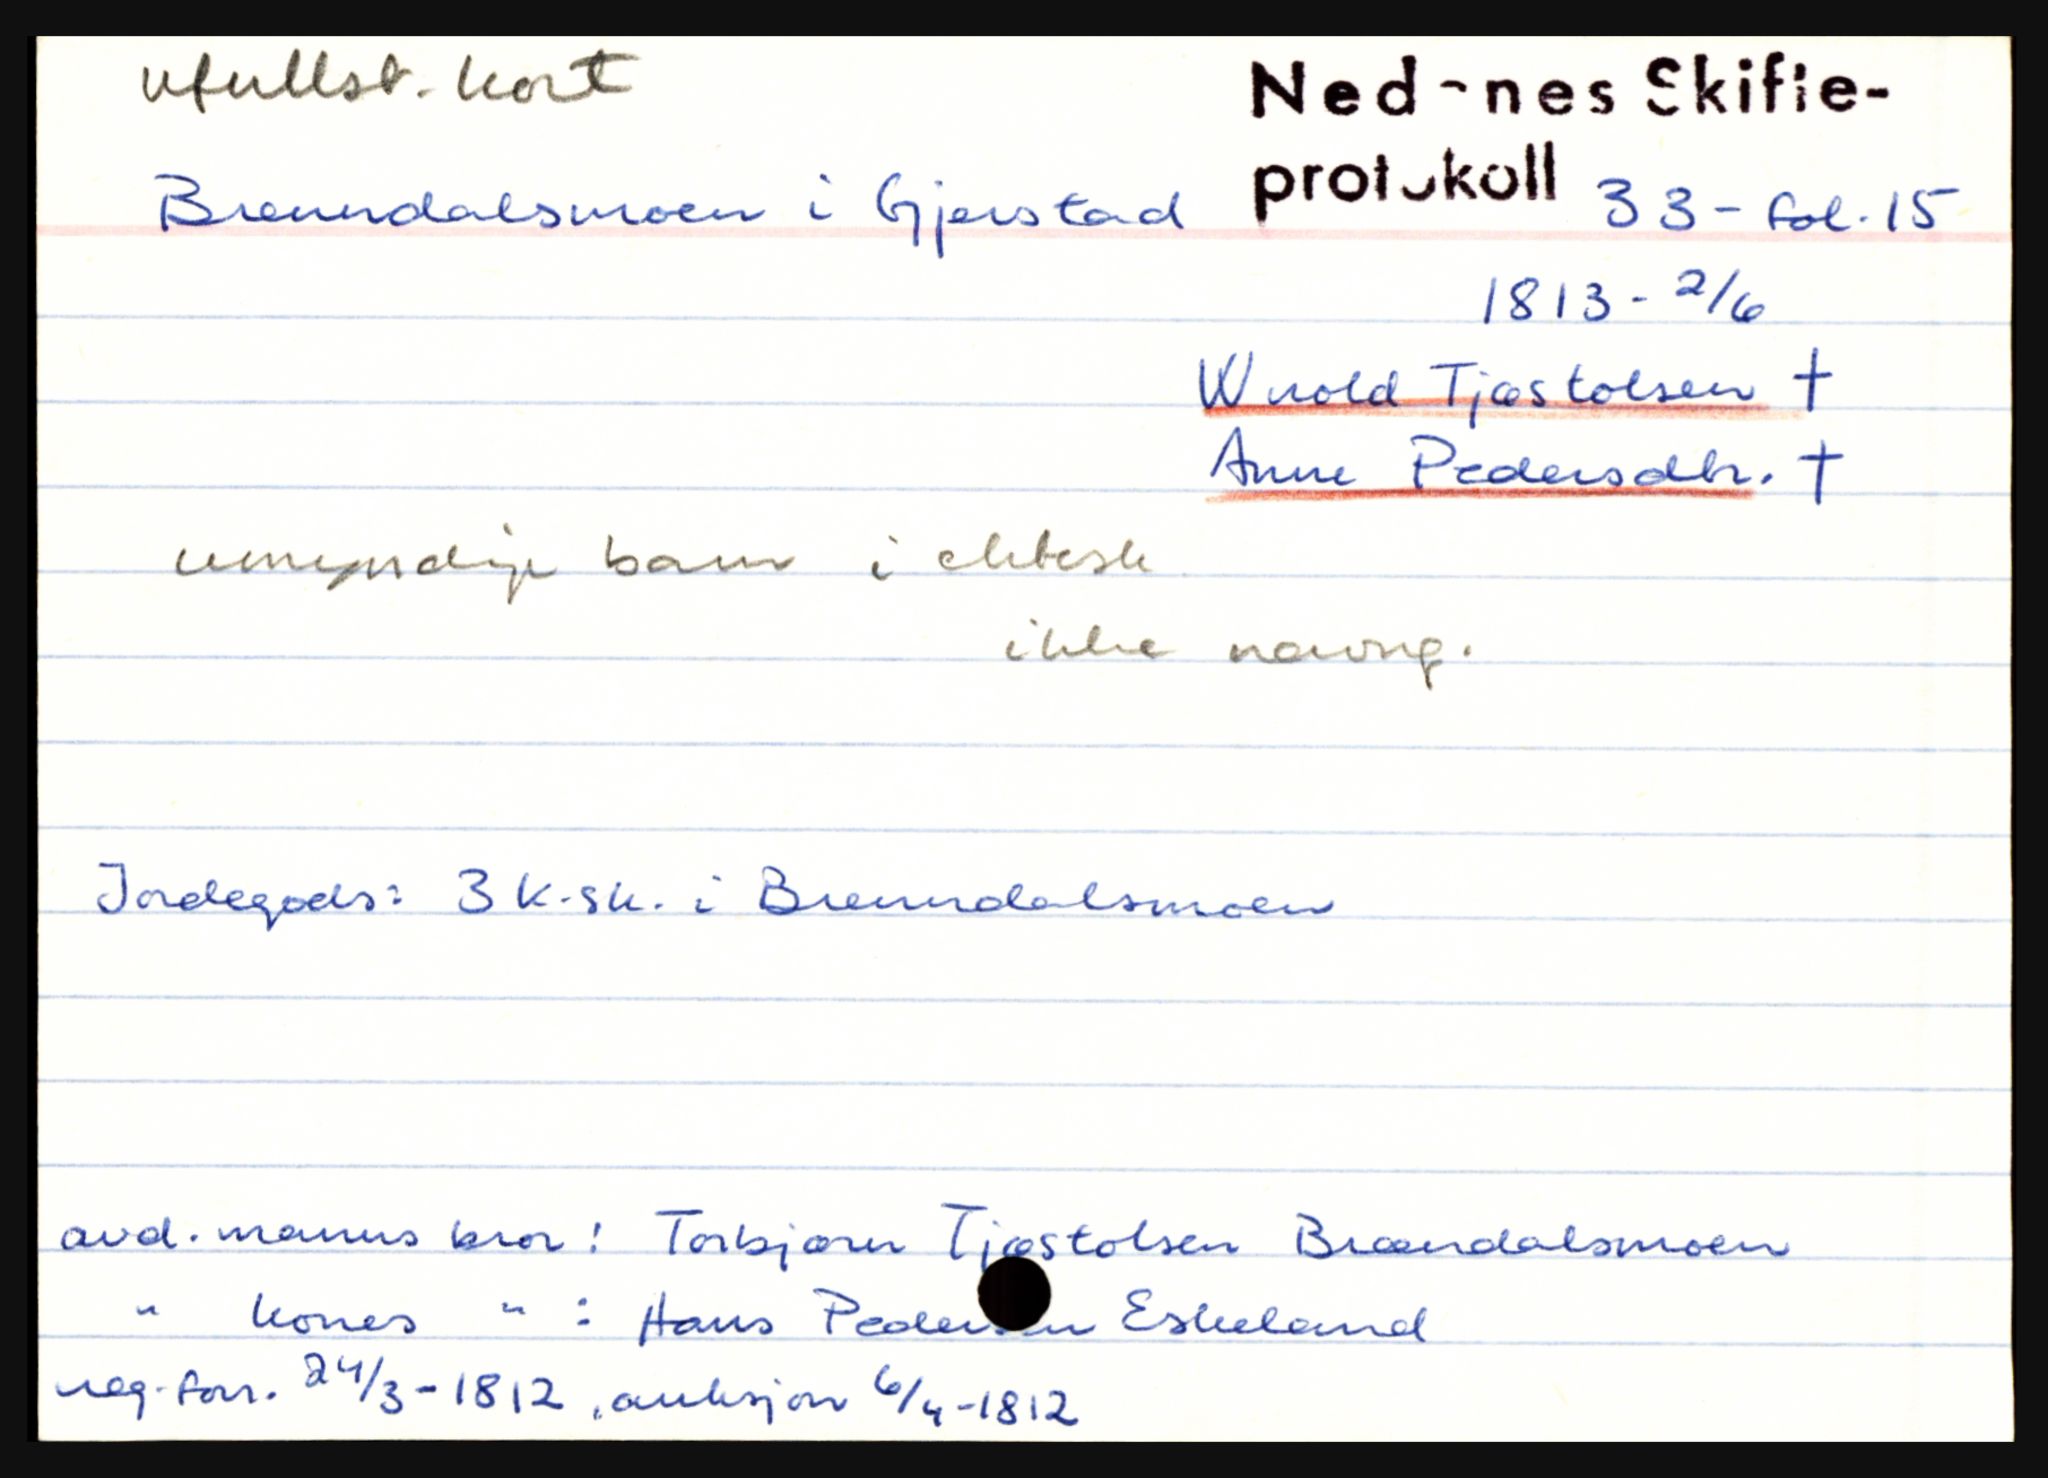 ufullst. kort
Nedenes Skifte-
protokoll 33 - fol. 15
Brenndalsmoen i Gjerstad
1813 - 2/6
Wrold Tjøstolsen †
Anne Pedersdtr. †
umyndige barn i ektesk.
ikke navng.
Jordegods: 3 k.sk. i Brenndalsmoen
avd. manns bror: Torbjørn Tjøstolsen Brændalsmoen
" kones " : Hans Pedersen Eskeland
reg.forr. 24/3-1812, auksjon 6/4-1812